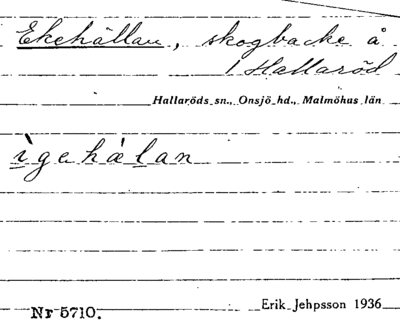 Ekehällan, skogbacke å
1 Hallaröd
Hallaröds sn., Onsjö hd., Malmöhus län
ìgehàlan
Nr 5710.
Erik Jehpsson 1936